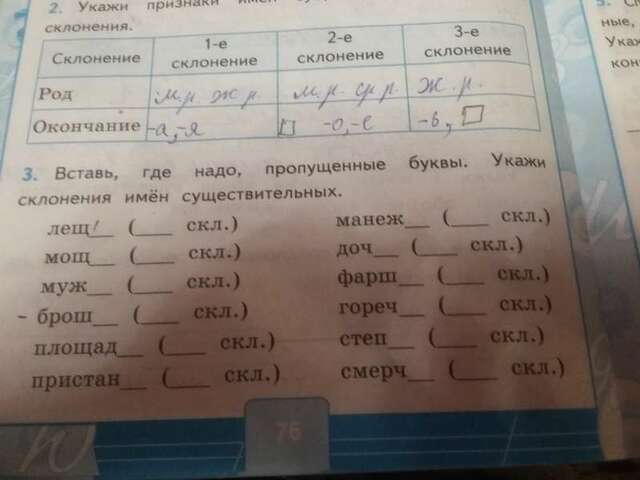 2. Укажи признаки имён
склонения.
Склонение 1-е склонение 2-е склонение 3-е склонение
Род м.р. ж.р. м.р. ср.р. ж.р.
Окончание -а,-я □ -о,-е -ь, □
3. Вставь, где надо, пропущенные буквы. Укажи
склонения имён существительных.
лещ__ (___ скл.) манеж__ (___ скл.)
мощ__ (___ скл.) доч__ (___ скл.)
муж__ (___ скл.) фарш__ (___ скл.)
- брош__ (___ скл.) гореч__ (___ скл.)
площад__ (___ скл.) степ__ (___ скл.)
пристан__ (___ скл.) смерч__ (___ скл.)
76
ные,